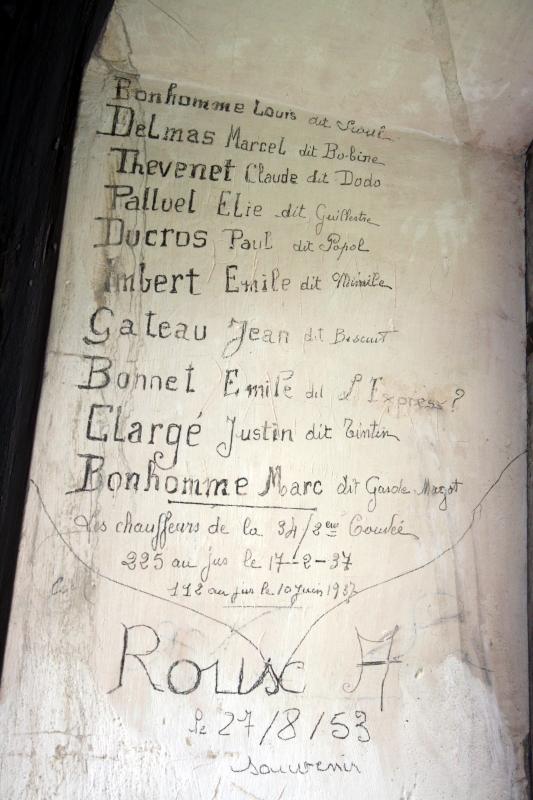 Bonhomme Louis dit
Delmas Marcel dit Bobine
Thevenet Claude dit Dodo
Palluel Elie dit Guillestre
Ducros Paul dit Popol
Imbert Emile dit Mimile
Gateau Jean dit Biscuit
Bonnet Emile dit L'Express?
Clargé Justin dit Tintin
Bonhomme Marc dit Garde Magot
Les chauffeurs de la 34/2eme
225 au jus le 17-2-37
112 au jus le 10 Juin 1937
A
le 27/8/53
souvenir